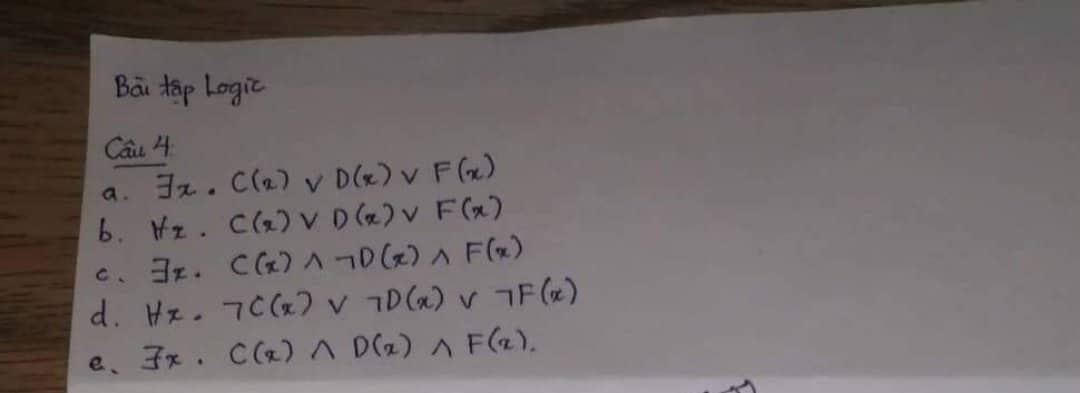 Bài tập Logic
Câu 4:
a. ∃x. C(x) ∨ D(x) ∨ F(x)
b. ∀x. C(x) ∨ D(x) ∨ F(x)
c. ∃x. C(x) ∧ ¬D(x) ∧ F(x)
d. ∀x. ¬C(x) ∨ ¬D(x) ∨ ¬F(x)
e. ∃x. C(x) ∧ D(x) ∧ F(x).